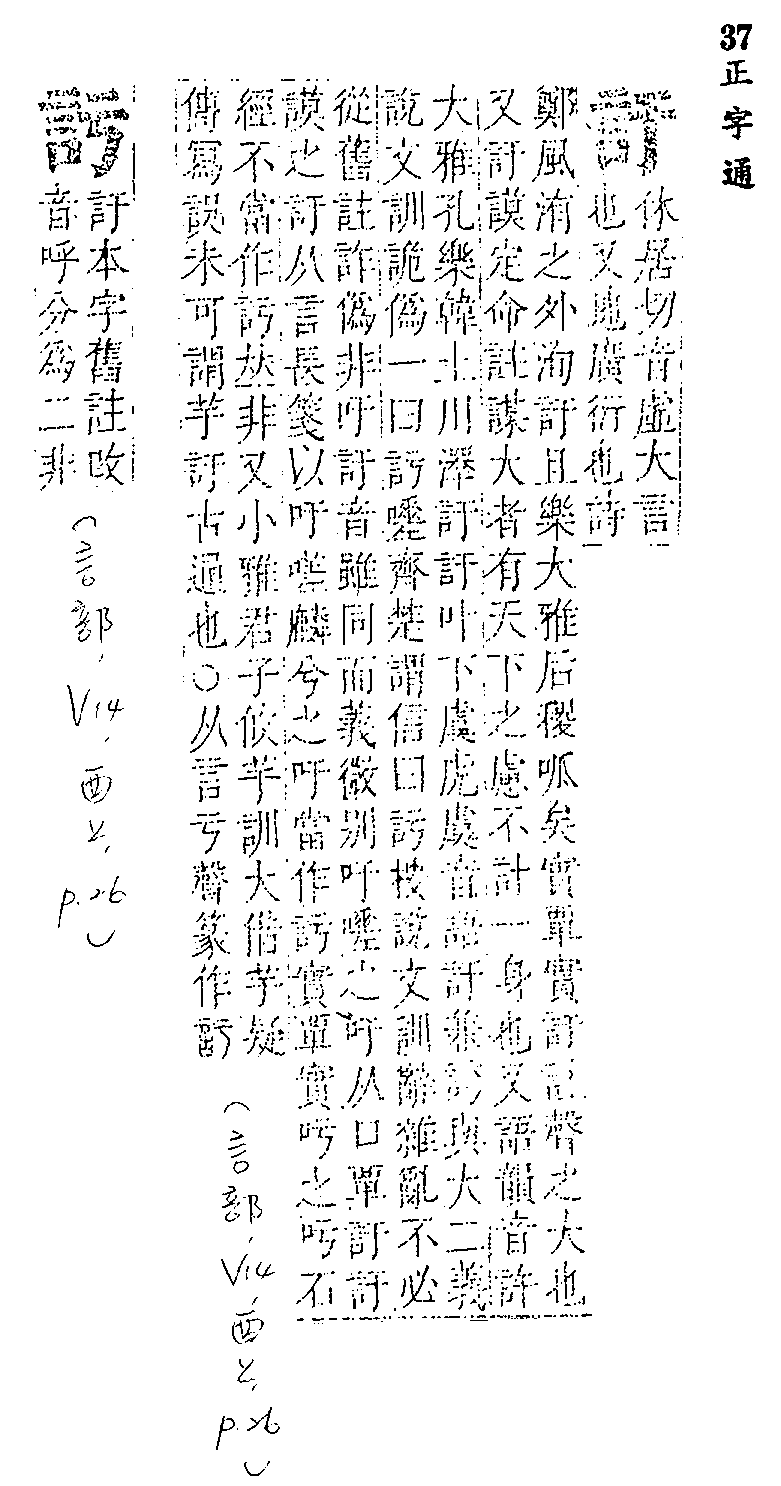 37 正字通
訏 休居切音虛大言
也又地廣衍也詩
鄭風洧之外洵訏且樂大雅后稷呱矣實覃實訏註聲之大也
又訏謨定命註謀大者有天下之慮不計一身也又語韻音許
大雅孔樂韓土川澤訏訏叶下虞虎虞音語訏 訏與大二義
說文訓詭偽一曰訏𧪢齊楚謂信曰訏按說文訓辭雜亂不必
從舊註詐偽非吁訏音雖同而義微別吁嗟之吁从口單訏訏
謨之訏从言長箋以吁嗟麟兮之吁當作訏實覃實吁之吁石
經不當作訏𠀤非又小雅君子攸芋訓大借芋疑
傳寫誤未可謂芋訏古通也○从言亏聲篆作䚽
(言部, V14, 酉上, p.26)
訏本字舊註改
音呼分為二非
(言部, V14, 酉上, p.26)